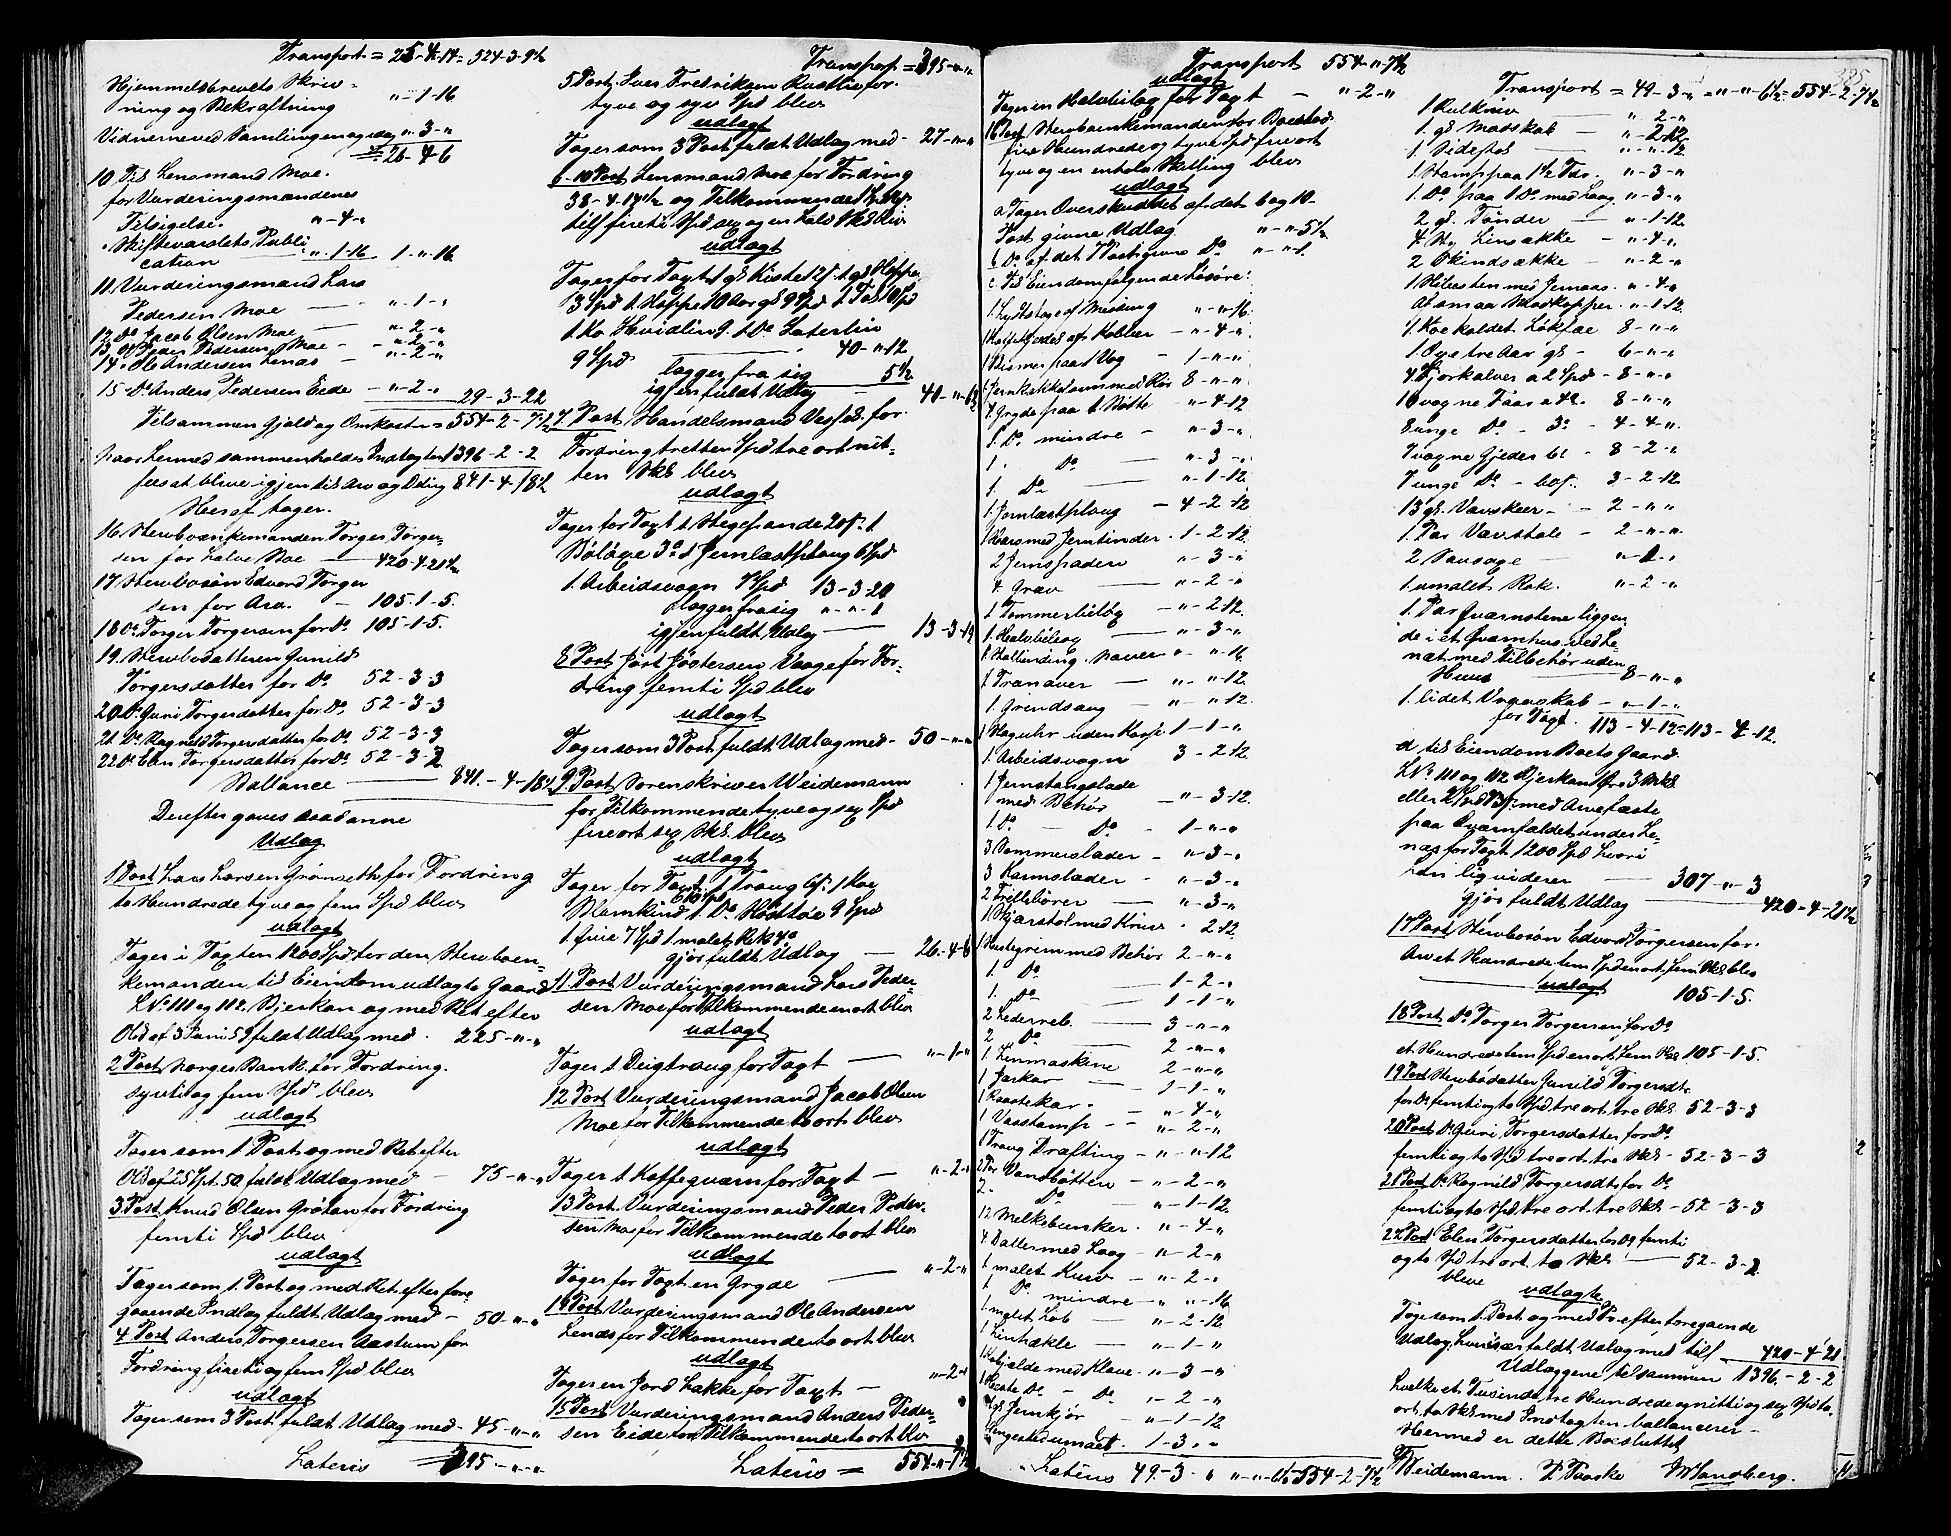 Transport = 25-4-14 = 524-3-9½
Hjemmelsbrevets Skriv-
ning og Bekræftning „-1-16
Vidnerne ved Samlingen og idag „-3-„
26-4-6
10. Til Lensmand Moe.
for Vurderingsmændenes
Tilsigelse. „-4-„
Skiftevardets Publi-
cation „-1-16 1-„-16
11. Vurderingsmand Lars
Pedersen Moe — „-1-„
12. Do Jacob Olsen Moe — „-2-„
13. Do Peder Pedersen Moe — „-2-„
14. Ole Andersen Lenæs — „-2-„
15 Do Anders Pedersen Eide — „-2-„ 29-3-22
Tilsammen Gjæld og Omkostn = 554-2-7½
naar hermed sammenholdes Indtægten 1396-2-2
sees at blive igjen til Arv og Deling 841-4-18½
Heraf tager.
16. Stervboenkemanden Torger Torger-
sen for halve Boe — 420-4-21½
17 Stervbosøn Edvard Torger
sen for Arv. — 105-1-5.
18 Do Torger Torgersen for Do 105-1-5.
19. Stervbodatteren Gunild
Torgersdatter for Do 52-3-3
20 Do Guri Torgersdatter for Do 52-3-3
21 Do Ragnild Torgersdatter for Do 52-3-3
22 Do Elen Torgersdatter for Do 52-3-2
Ballance — 841-4-18½
Derefter gaves saadanne
Udlæg
1 Post Lars Larsen Grønseth for Fordring
to Hundrede tyve og fem Spd blev
udlagt
Tager i Taxten 1200 Spd for den Stervboen-
kemanden til Eiendom udlagte Gaard
L No 111 og 112. Bjerkan og med Ret efter
Obl af 3 Juni 59 fuldt Udlæg med. 225-„-„
2 Post Norges Bank for Fordring.
sytti og fem Spd blev
udlagt
Tager som 1. Post og med Ret efter
Obl af 25 Spt. 50 fuldt Udlæg med — 75-„-„
3 Post Knud Olsen Grøtan for Fordring
femti Spd blev
udlagt
Tager som 1. Post og med Ret efter fore-
gaaende Indlæg fuldt Udlæg med — 50-„-„
4 Post Anders Torgersen Aastum for
Fordring firti og fem Spd blev
udlagt
Tager som 3 Post fuldt Udlæg med — 45-„-„
Lateris = 395-„-„
Transport = 395-„-„
5 Post Iver Fredriksen for.
tyve og syv Spd blev
udlagt
Tager som 3 Post fuldt Udlæg med — 27-„-„
6-10 Post Lensmand Moe for Fordring
38-4-14½ og Tilkommende
tilf firti Spd sex og en halv Skl blev
udlagt
Tager for Taxt 1 gl Kiste 1 gl Hoppe
13 Spd 1 Hoppe 10 Aar gl 9 Spd
1 Ko Hvidlin 9. 1 Do Laterlin
9 Spd 40-„-12
lægger fra sig 5½
igjen fuldt Udlæg — 40-„-6½
7 Post Handelsmand for.
Fordring tretten Spd tre ort nit-
ten Skl blev
udlagt
Tager for Taxt 1 1
3 Do 1 Jernlastplovg 6 Spd
1. Arbeidsvogn 4 Spd 13-3-20
lægger fra sig „-„-1
igjen fuldt Udlæg — 13-3-19
8 Post Jørt Jøstersen Vaage for For-
dring femti Spd blev
udlagt
Tager som 3 Post fuldt Udlæg med — 50-„-„
9 Post Sorenskriver Weidemann
for Tilkommende tyve og sex Spd
fire ort sex Skl. blev
udlagt
Tager for Taxt 1 Traug 6 1 Koe
Blomkind 1. Do Høstløe 9 Spd
1. 7 Spd 1 malet Rok 4
gjør fuldt Udlæg — 26-4-6
11. Post Vurderingsmand Lars Peder-
sen Moe for Tilkommende en ort blev
udlagt
Tager 1 Deigtraug for Taxt — „-1-„
12 Post Vurderingsmand Jacob Olsen
Moe for Tilkommende to ort blev
udlagt
Tager 1 Kaffeqværn for Taxt — „-2-„
13 Post Vurderingsmand Peder Peder-
sen Moe for Tilkommende to ort blev
udlagt
Tager for Taxt en Gryde — „-2-„
14 Post Vurderingsmand Ole Andersen
Lends for Tilkommende to ort blev
udlagt
Tager en Jord Hakke for Taxt — „-2-„
15 Post Vurderingsmand Anders Peder-
sen Eide for Tilkommende to ort blv
Lateris = 554-„-7½
Transport 554-„-7½
udlagt
Tager en Halvbilag for Taxt — „-2-„
16 Post Stervboenkemanden for Boeslod
fire Hundrede og tyve Spd fire ort
tyve og en halv Skilling blev
udlagt
a Tager Overskuddet af det 6 og 10
Post givne Udlæg „-„-5½
b Do af det 7 Post givne Do „-„-1.
c. Til Eiendom følgende Løsøre:
1 Lysestage af Messing „-„-16
1 Kaffekjedel af Kobber — „-4-„
1 Bismer paa 1 Vog — 1-„-„
1 Jernkakkelovn med Rør 8-„-„
1 Gryde paa 1 Bøtte — „-4-12
1. Do mindre — „-3-„
1. Do — „-3-„
1 Do — „-1-12
1. Jernlastplovg — 4-2-12
1 Harv med Jerntinder. 1-2-12
2 Jernspader „-3-„
4. Græv — „-2-„
1 Tømmerbiløg — „-2-12
1. Halvbileog — „-3-„
1. Hallinding. Naver „-„-16
1 Tranaver — „-„-12
1. Grindsaug — „-„-12
1 Stagulr uden Karse 1-1-„
1. Arbeidsvogn 3-2-12
1 Jernstangslæde
med Behør — „-3-12
1. Do — Do — 1-„-„
3. Tømmerslæder — „-3-„
3 Karmslæder — „-3-„
2 Trillebører — „-3-„
1 Skjærstol med Kniv. 2-12
1 Hestegrim med Behør 2-„-„
1. Do 1-2-„
1. Do — 1-1-„
2 Lederreb. — 3-„-„
2 Do — 2-„-„
1. Linmaskine 2-„-„
1 Jarkar — 1-1-„
1 Raastekar. — „-4-„
1 Vasstamp — „-2-„
1 Traug Drafting — „-„-12
2 Par Vansbøtten — „-2-„
2 Do „-1-12
12 Melkebunker. „-4-„
4 Daller med Laag — „-2-„
1 malet Kurv — „-2-„
1 Do mindre — „-„-16
1. malet Løb — „-2-12
1 Linhækle — „-1-„
1. Kobjælde med Klave. „-3-„
1 Heste Do — Do „-2-„
Jernkjør „-1-12
1-3-„
Lateris 49-3-„ „-„-6½ 554-2-7½
385
Transport = 49-3-„ = „-„-6½ = 554-2-7½
1 Rulkniv — „-2-„
1. gl Madskab — „-2-12
1 Sidepos — „-„-12
1 Stamp paa 1½ Tdr. „-3-„
1. Do paa 1 Do med Laag „-3-„
2 gl. Tønder — „-1-12
4 Linsække — „-4-„
2 Skindsække — „-2-„
1 Slibesten med Jernaas. „-4-„
At smaa Madkopper. „-1-12
1. Koe kaldet Løksae 8-„-„
1. Oxe tre Aar gl — 6-„-„
4 Bjorkalver a 2 Spd — 8-„-„
10 vogne Faar a 4 . 8-„-„
8 unge Do — 3 — 4-4-„
7 vogne Gjeder 6 — 8-2-„
7 unge Do — 3-2-12
13 gl. Vævskeer — 2-„-„
1. Par Vævstole — 2-„-„
2 — „-1-„
1. umalet Rok. „-2-„
1. Par Qværnstene liggen
de i et Qværnhus ved Le-
næt med Tilbehør uden
Huus — 8-„-„
1. lidet Vægskab — „-1-„
for Taxt. 113-4-12 = 113-4-12.
d til Eiendom Boets Gaard
L No 111 og 112 Bjerkan øre 3 Mkl
eller med Arvefæste
paa Qværnfaldet under Le-
næs for Taxt 1200 Spd hvori
han liqviderer — 307-„-3
gjør fuldt Udlæg — 420-4-21½
17 Post Stervbosøn Edvard Torgersen for.
Arv et Hundrede fem Spd en ort fem Skl blev
udlagt 105-1-5.
18 Post Do Torger Torgersen for Do
et Hundrede fem Spd en ort fem Skl 105-1-5.
19 Post Stervbodatter Gunild Torgersdt-
for Do femti og to Spd. tre ort. tre Skl. 52-3-3
20 Post Do Guri, Torgersdatter for Do
femti og to Spd tre ort. tre Skl — 52-3-3
21 Post Do Ragnild Torgersdt for Do
femti og to Spd. tre ort. tre Skl — 52-3-3
22 Post Elen Torgersdatter for Do femti
og to Spd tre ort. to Skl — 52-3-2
bleve
udlagte
Tage som 1. Post og med Pr efter foregaaende
Udlæg hver især fuldt Udlæg med tilf 420-4-21
Udlæggene tilsammen 1396-2-2
hvilket et Tusinde tre Hundrede og nitti og sex Spd to
ort. to Skl med Indtægten balancerer.
Hermed er dette Boe sluttet
Weidemann. P Paaske M Sandberg.